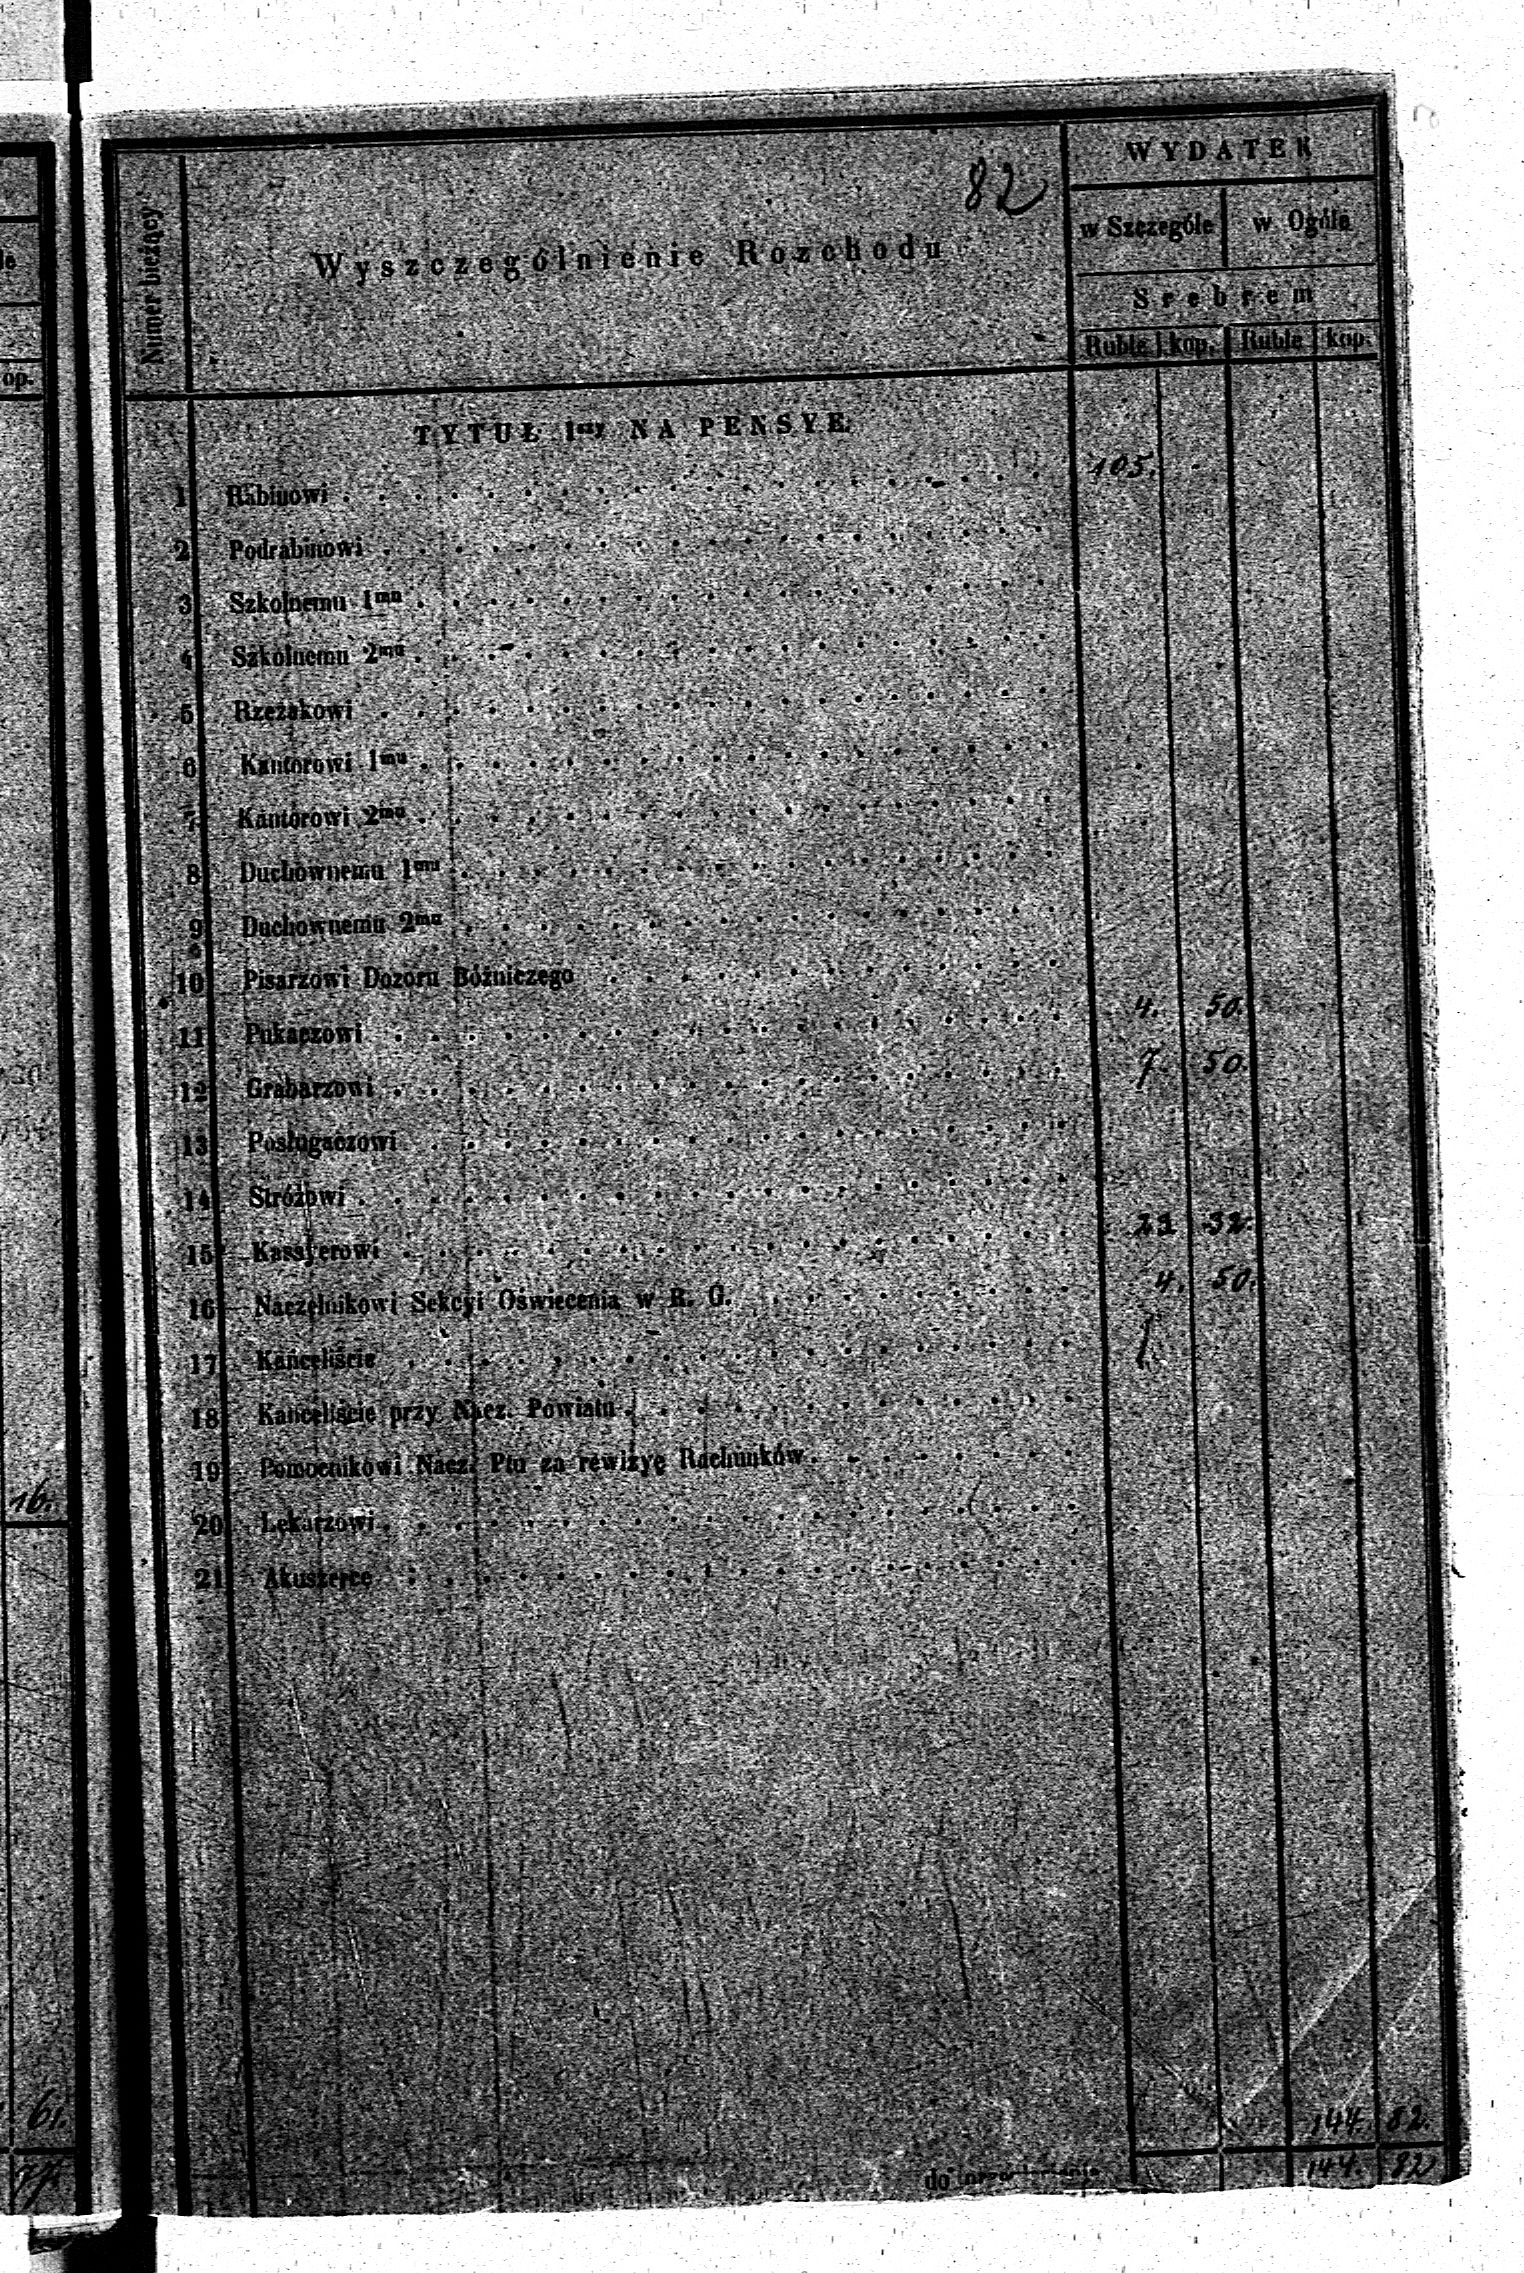 82
WYDATEK
Numer bieżący
Wyszczególnienie Rozchodu
w Szczególe | w Ogóle
Srebrem
Ruble | kop. | Ruble | kop.
TYTUŁ Iszy NA PENSYE.
1 Rabinowi 105.
2 Podrabinowi
3 Szkolnemu 1mu
4 Szkolnemu 2mu
5 Rzezakowi
6 Kantorowi 1mu
7 Kantorowi 2mu
8 Duchownemu 1mu
9 Duchownemu 2mu
10 Pisarzowi Dozoru Bóżniczego
11 Pukaczowi 4. 50.
12 Grabarzowi 7. 50.
13 Posługaczowi
14 Stróżowi
15 Kassyerowi 32.
16 Naczelnikowi Sekcyi Oświecenia w R. G. 4. 50.
17 Kanceliście
18 Kanceliście przy Nacz. Powiatu
19 Pomocnikowi Nacz. Ptu za rewizyę Rachunków
20 Lekarzowi
21 Akuszerce
144. 82.
do
144. 82
le
op.
16.
61.
77.